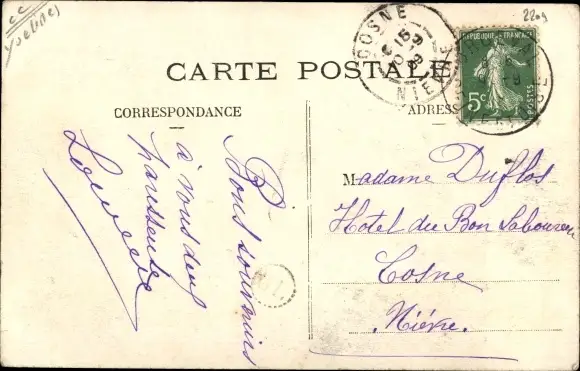 cc
Yvelines
2209
COSNE
NIEVRE
RÉPUBLIQUE FRANÇAISE
5c
POSTES
CARTE POSTALE
CORRESPONDANCE
ADRESS
Bons souvenirs
à vous deux
Madame Duflos
Hotel du Bon Laboureur
Cosne
Nièvre.